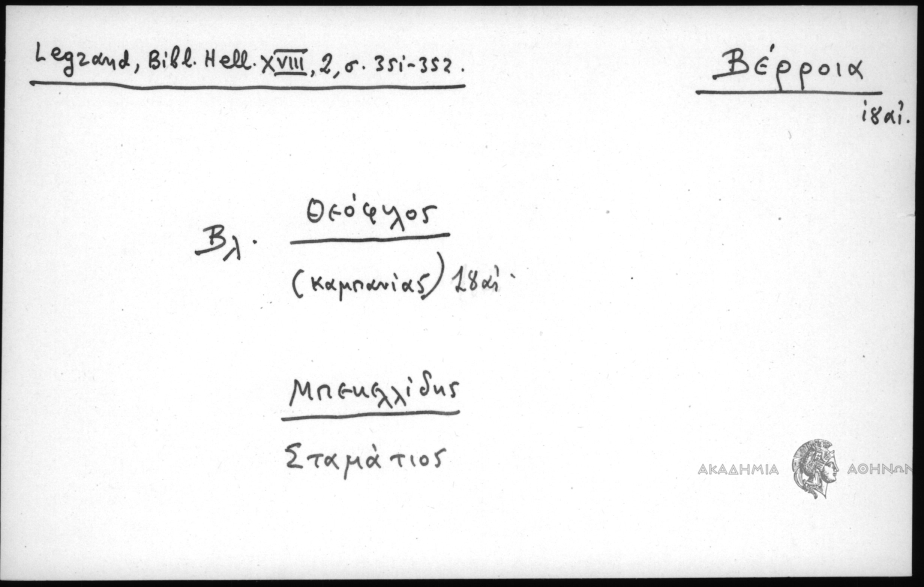 Legrand, Bibl. Hell. XVIII, 2, σ. 351-352.
Βέρροια
18 αἰ.
Βλ. Θεόφιλος
(Καμπανίας) 18 αἰ.
Μπεκελλίδης
Σταμάτιος
ΑΚΑΔΗΜΙΑ ΑΘΗΝΩΝ